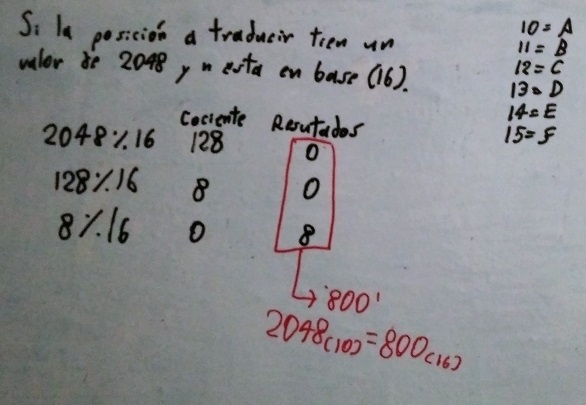 Si la posición a traducir tien un
valor de 2048 y n esta en base (16).
10 = A
11 = B
12 = C
13 = D
14 = E
15 = F
Cociente Resutados
2048 % 16 128 0
128 % 16 8 0
8 % 16 0 8
'800'
2048(10) = 800(16)